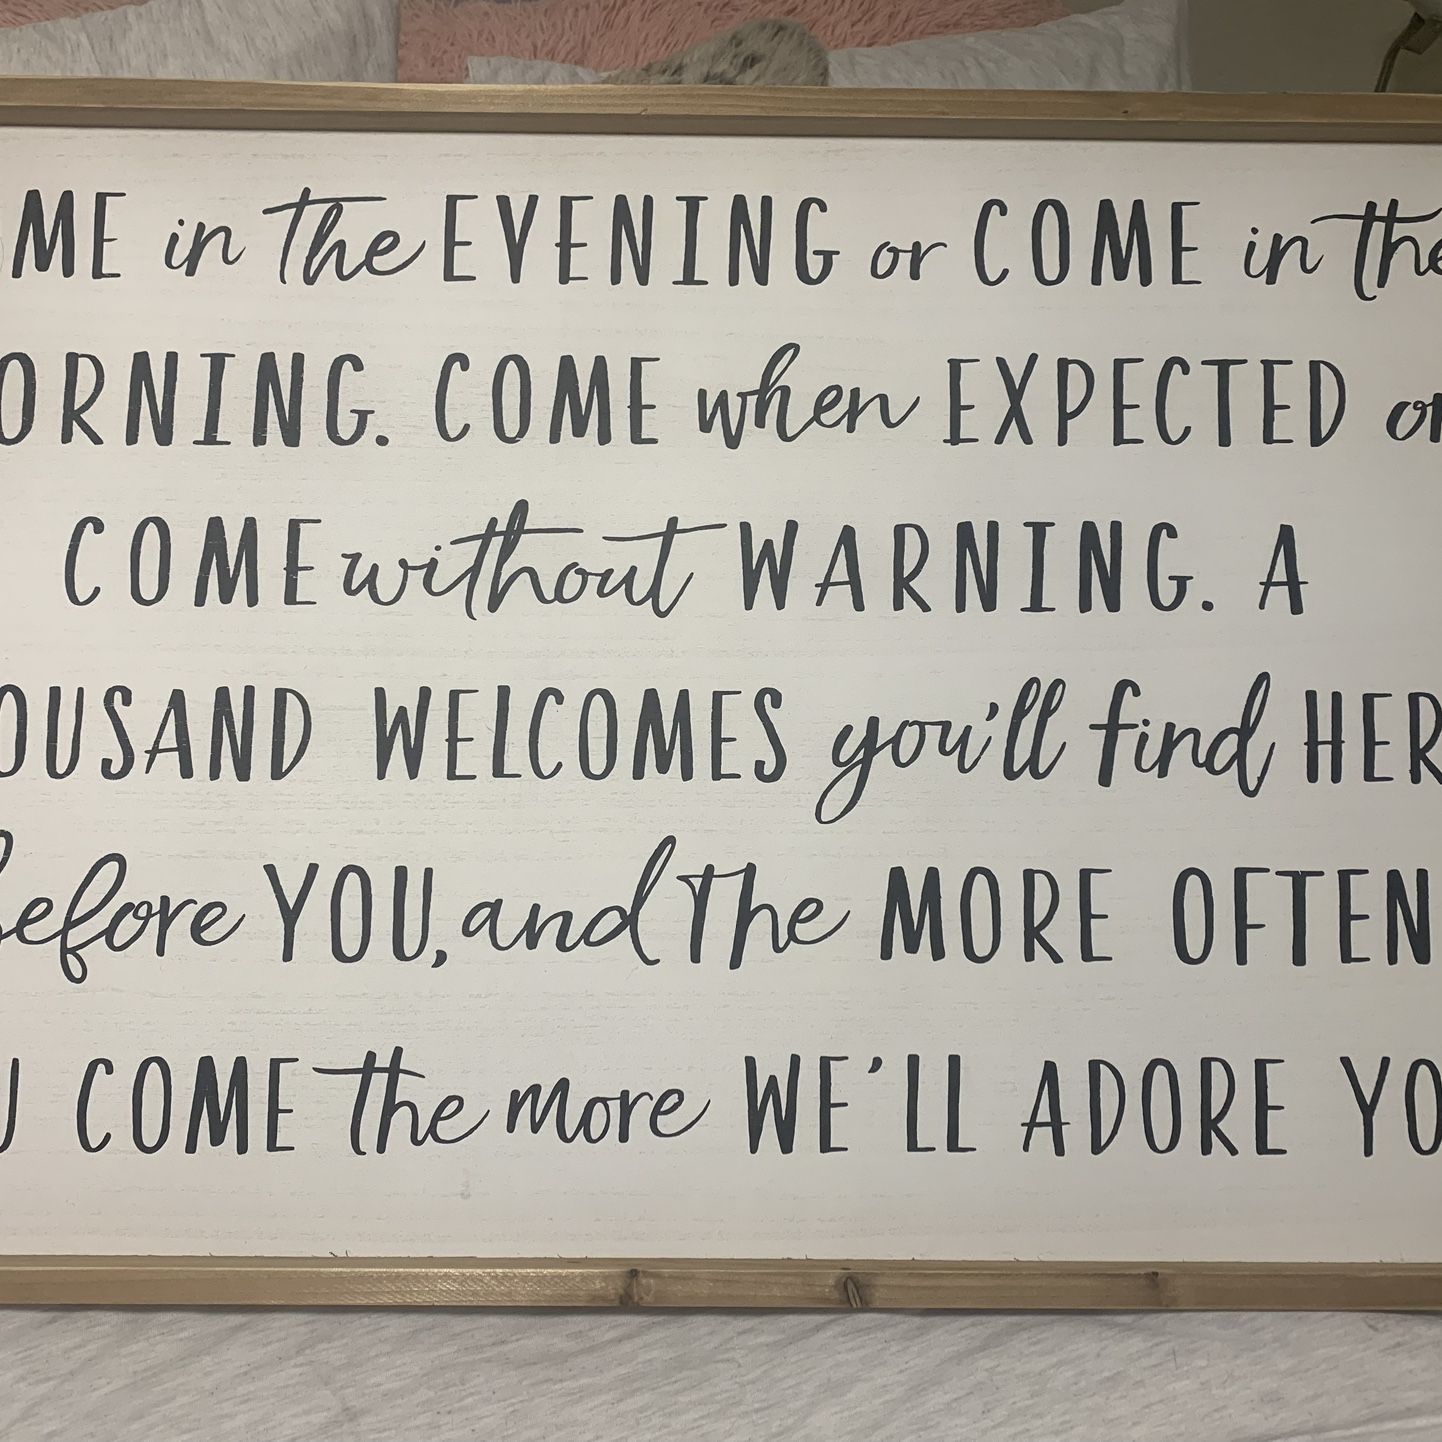 OME in the EVENING or COME in the
ORNING. COME when EXPECTED or
COME without WARNING. A
OUSAND WELCOMES you'll find HER
before YOU, and The MORE OFTEN
U COME the more WE'LL ADORE YO